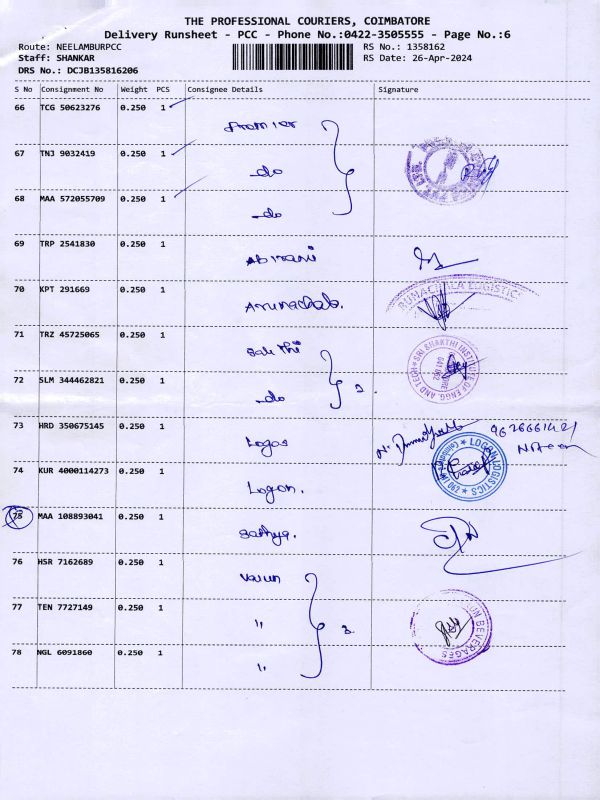 THE PROFESSIONAL COURIERS, COIMBATORE
Delivery Runsheet - PCC - Phone No.:0422-3505555 - Page No.:6
Route: NEELAMBURPCC RS No.: 1358162
Staff: SHANKAR RS Date: 26-Apr-2024
DRS No.: DCJB135816206
S No Consignment No Weight PCS Consignee Details Signature
66 TCG 50623276 0.250 1
Premier
67 TNJ 9032419 0.250 1
do
68 MAA 572055709 0.250 1
do
69 TRP 2541830 0.250 1
Abirami
70 KPT 291669 0.250 1
Arunachala. LOGISTIC
71 TRZ 45725065 0.250 1
SRI SHAKTHI INSTITUTE OF ENGG. AND TECH
72 SLM 344462821 0.250 1
do 2
73 HRD 350675145 0.250 1
Logos
74 KUR 4000114273 0.250 1
Logon. LOGON LOGISTICS
75 MAA 108893041 0.250 1
Sathya.
76 HSR 7162689 0.250 1
Varun
77 TEN 7727149 0.250 1
" 3 BEVERAGES
78 NGL 6091860 0.250 1
"